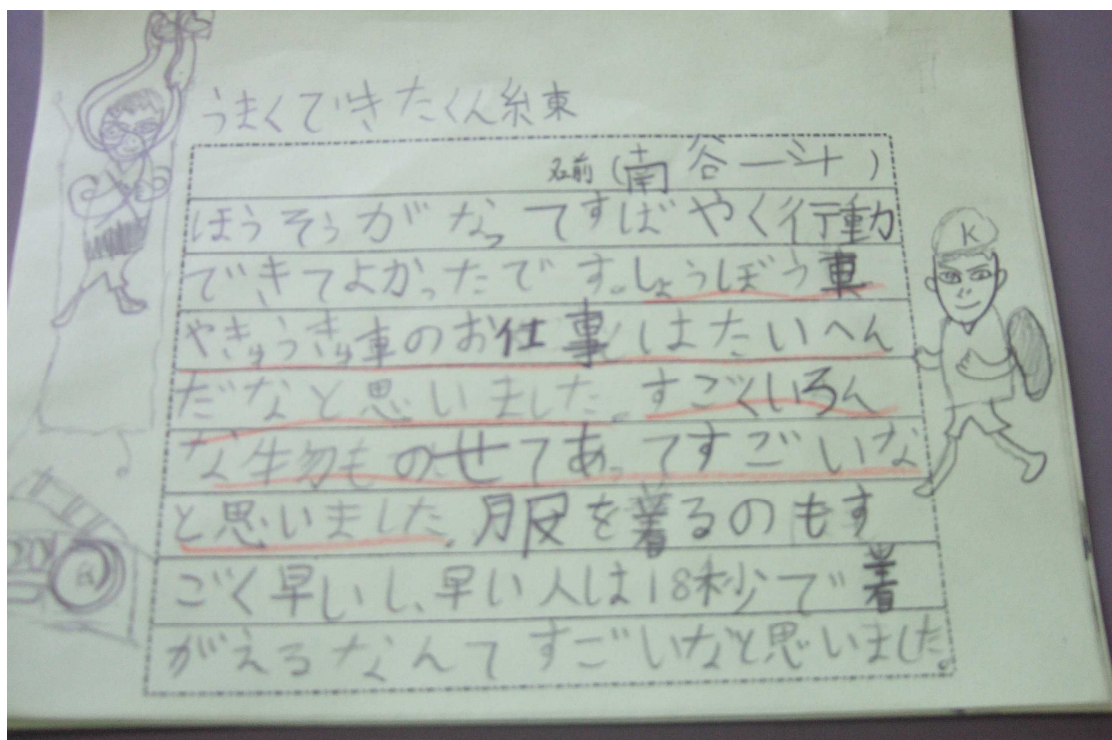 うまくできたくん糸東
名前(南谷一斗)
ほうそうがなってすばやく行動
できてよかったです。しょうぼう車
やきゅうきゅう車のお仕事はたいへん
だなと思いました。すごくいろん
な生物ものせてあってすごいな
と思いました。服を着るのもす
ごく早いし、早い人は18秒で着
がえるなんてすごいなと思いました。
K